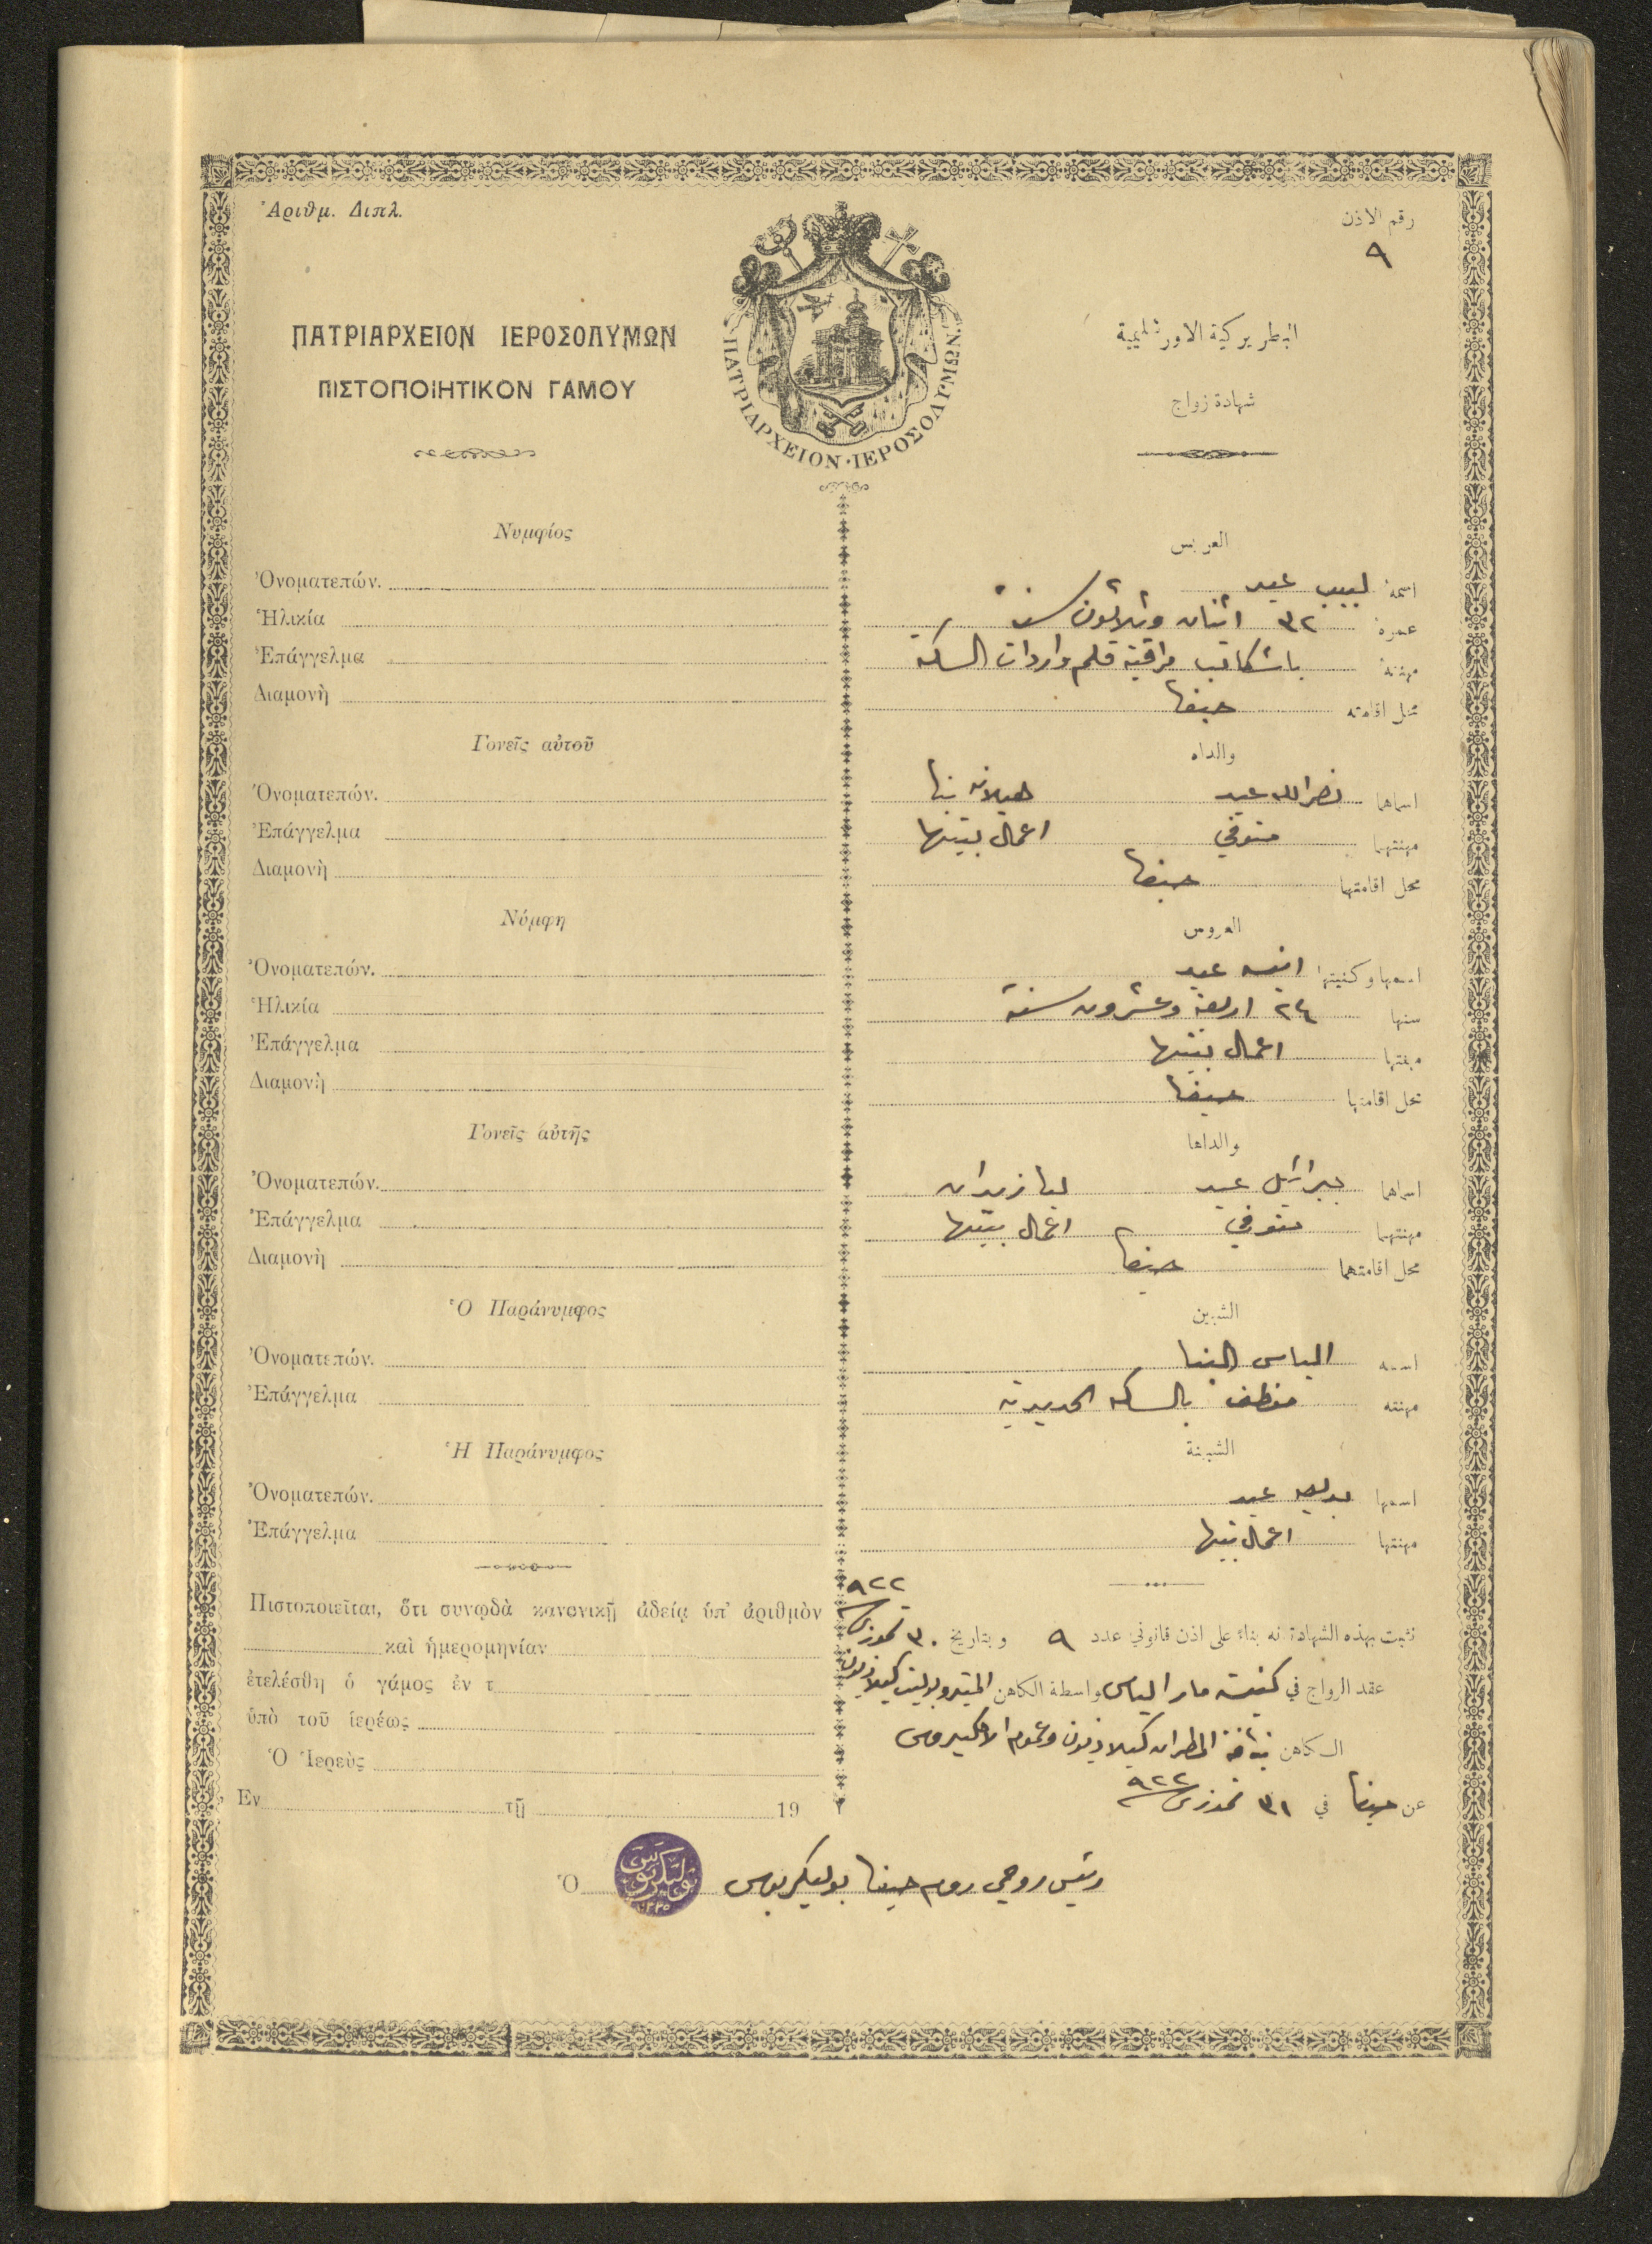 Ἀριθμ. Διπλ.
رقم الاذن
٩
ΠΑΤΡΙΑΡΧΕΙΟΝ ΙΕΡΟΣΟΛΥΜΩΝ
ΠΙΣΤΟΠΟΙΗΤΙΚΟΝ ΓΑΜΟΥ
ΠΑΤΡΙΑΡΧΕΙΟΝ·ΙΕΡΟΣΟΛΥΜΩΝ
البطريركية الاورشليمية
شهادة زواج
Νυμφίος
Ὀνοματεπών.
Ἡλικία
Ἐπάγγελμα
Διαμονὴ
Γονεῖς αὐτοῦ
Ὀνοματεπών.
Ἐπάγγελμα
Διαμονὴ
Νύμφη
Ὀνοματεπών.
Ἡλικία
Ἐπάγγελμα
Διαμονὴ
Γονεῖς αὐτῆς
Ὀνοματεπών.
Ἐπάγγελμα
Διαμονὴ
Ὁ Παράνυμφος
Ὀνοματεπών.
Ἐπάγγελμα
Ἡ Παράνυμφος
Ὀνοματεπών.
Ἐπάγγελμα
Πιστοποιεῖται, ὅτι συνῳδὰ κανονικῇ ἀδείᾳ ὑπ' ἀριθμὸν
καὶ ἡμερομηνίαν
ἐτελέσθη ὁ γάμος ἐν τ
ὑπὸ τοῦ ἱερέως
Ὁ Ἱερεὺς
Ἐν τῇ 19
العريس
اسمه لبيب عيد
عمره ٣٢ اثنان وثلاثون سنة
مهنته باشكاتب مراقبة قلم واردات السكة
محل اقامته حيفا
والداه
اسماهما نصرالله عيد هيلانه
مهنتهما متوفي اعمال بيتها
محل اقامتهما حيفا
العروس
اسمها وكنيتها انيسه عيد
سنها ٢٤ اربعة وعشرون سنة
مهنتها اعمال بيتها
محل اقامتها حيفا
والداها
اسماهما جبرائيل عيد زيدان
مهنتهما متوفي اعمال بيتها
محل اقامتهما حيفا
الشبين
اسمه الياس البنا
مهنته موظف بالسكه الحديدية
الشبينة
اسمها بديعه عيد
مهنتها اعمال بيتها
نثبت بهذه الشهادة انه بناءً على اذن قانوني عدد ٩ وبتاريخ ٣٠ تموز ٩٢٢
عقد الزواج في كنيسة مار الياس بواسطة الكاهن المتروبوليت كيلاذيون
الكاهن المطران كيلاذيون وعموم الاكليروس
عن حيفا في ٣١ تموز ٩٢٢
رئيس روحي روم حيفا بوليكربوس
Ὁ